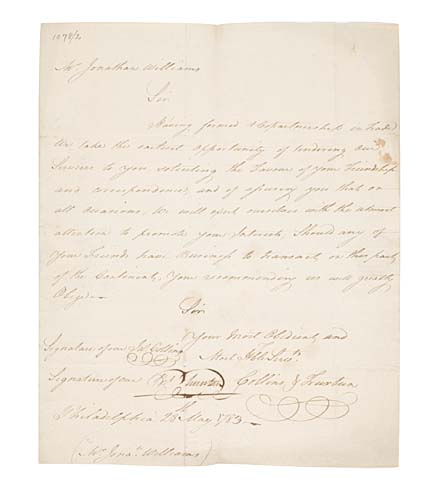 1078/2
Mr. Jonathan Williams
Sir
Having formed a Copartnership in trade
We take the earliest opportunity of tendering our
Services to you, soliciting the Favour of your Friendship
and correspondence, and of assuring you that on
all occasions, We will exert ourselves with the utmost
attention to promote your Interest, Should any of
your Friends have Business to transact in this part
of the Continent, Your recommending us will greatly
Oblige
Sir
Your Most Obedient and
Signature of our Collins Most Hble Servts
Signature of our Truxtun Collins & Truxtun
Philadelphia 28th May 1783
(Mr. Jona. Williams)